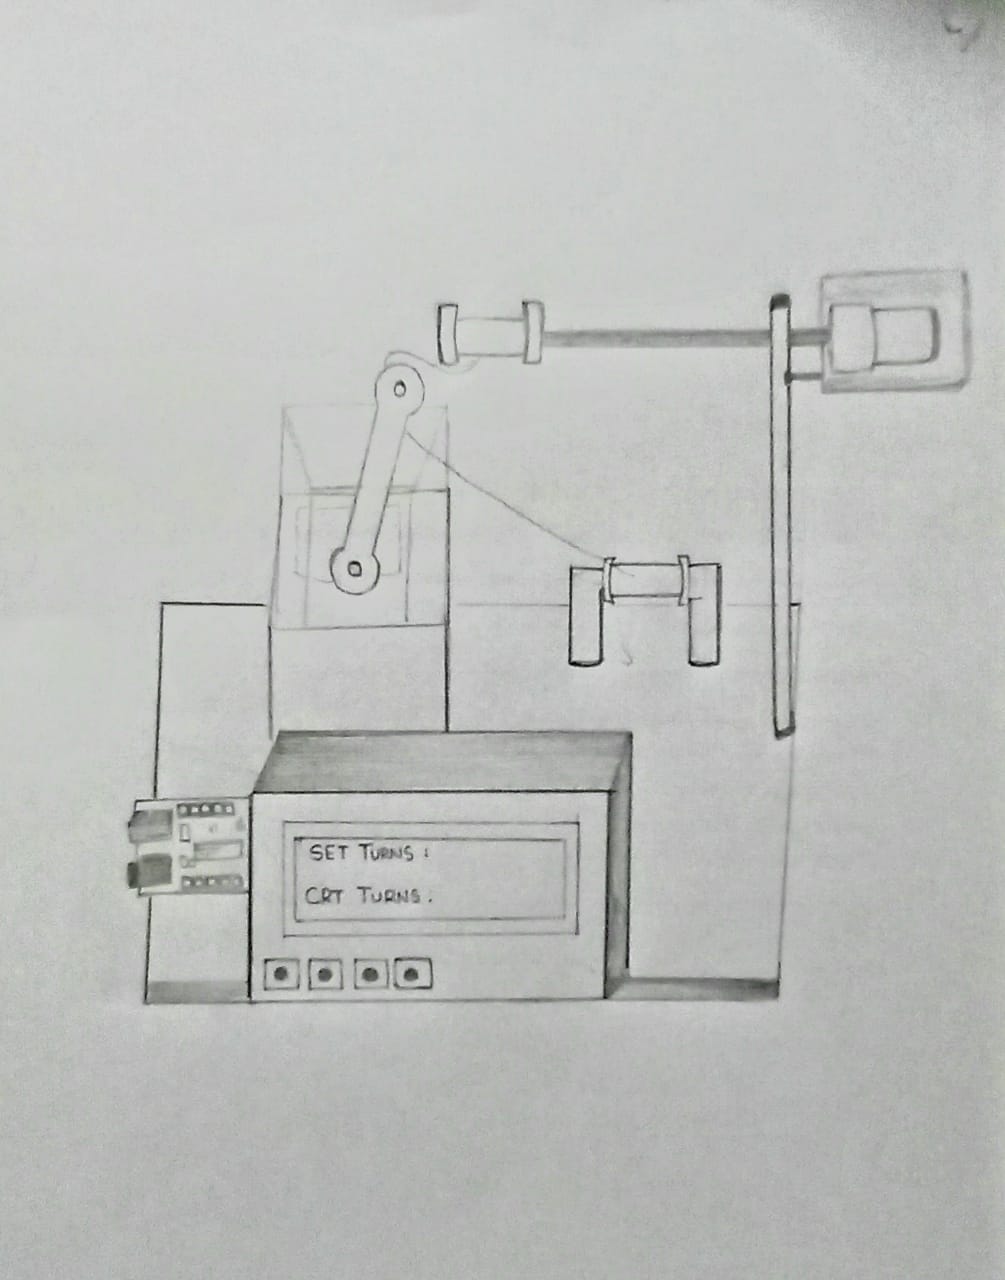 SET TURNS :
CRT TURNS :